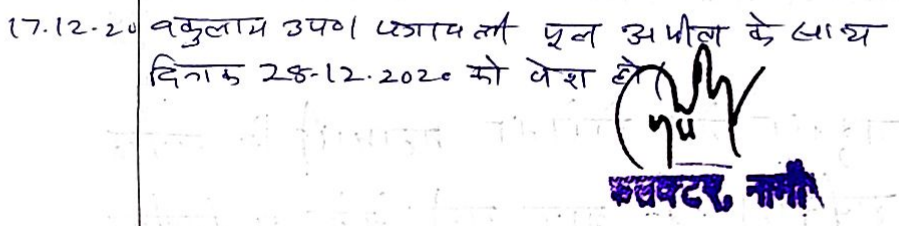 17.12.20 वकुलाय उपण पत्रावली मूल अपील के साथ
दिनांक 28-12.2020 को पेश हो।
कलक्टर, नागौर